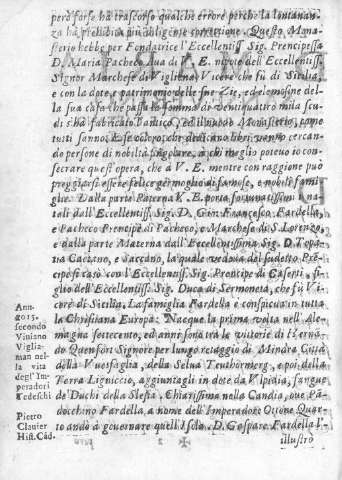 però forse hà trascorso qualche errore perche la lontanan-
za hà prohibita più diligente correttione. Questo Mona-
sterio hebbe per Fondatrice l'Eccellentiss. Sig. Prencipessa
D. Maria Pacheco Aua di V. E. nipote dell'Eccellentiss.
Signor Marchese di Vigliena Vicerè che fù di Sicilia,
e con la dote, e patrimonio delle sue Zie, ed elemosine del-
la sua casa che passa la somma di ventiquattro mila scu-
di s'hà fabricato l'antico, ed il nuouo Monasterio, come
tutti sanno: E se coloro, che dedicano libri, vanno cercan-
do persone di nobiltà singolare, à chi meglio poteuo io con-
secrare quest opera, che à V. E. mentre con raggione può
preggiarsi essere felice germoglio di famose, e nobili fami-
glie. Dalla parte Paterna V. E. porta fortunatissimi na-
tali dall'Eccellentiss. Sig. D. Gio: Francesco Fardella,
e Pacheco Prencipe di Pacheco, e Marchese di S. Lorenzo,
e dalla parte Materna dall'Eccellentissima Sig. D. Topa-
tia Gaetano, e Saccano, la quale vedoua del sudetto Prē-
cipe si casò con l'Eccellentiss. Sig. Prencipe di Caserti, fi-
glio dell'Eccellentiss. Sig. Duca di Sermoneta, che fù Vi-
cerè di Sicilia. La famiglia Fardella è conspicua in tutta
la Christiana Europa: Nacque la prima volta nell'Ale-
magna sestecento, ed anni sono tra le vittorie di
do Quenfort Signore per lungo retaggio di Mindra Città
della Vuestfaglia, della Selua Teuthomerg, e poi della
Terra Ligniccio, aggiuntagli in dote da Vlpidia, sangue
de' Duchi della Slesia. Chiarissima nella Candia, oue Pā-
docchino Fardella, à nome dell'Imperadore Ottone Quar-
to andò à gouernare quell Isola. D. Gaspare Fardella l'
illustrò
Ann.
9015.
secondo
Viniano
Viglia-
man nel-
la vita
degl'Im-
peradori
Tedeschi
Pietro
Clauier
Hist. Cād.